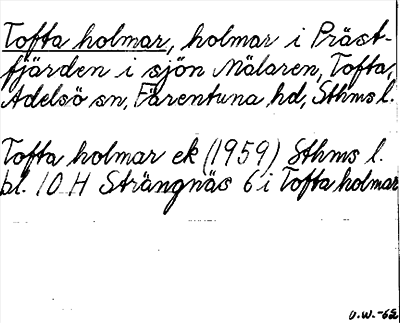 Tofta holmar, holmar i Präst-
fjärden i sjön Mälaren, Tofta,
Adelsö sn, Färentuna hd, Sthms l.
Tofta holmar ek (1959) Sthms l.
bl. 10 H Strängnäs 6 i Tofta holmar
U.W.-62